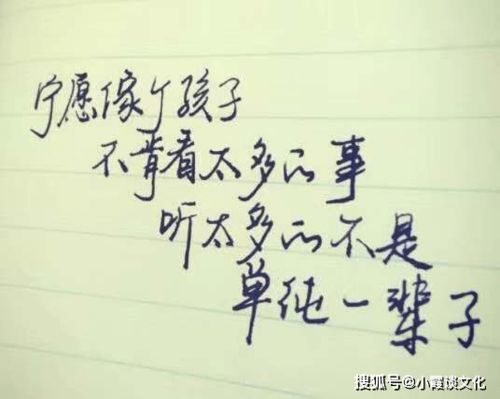 宁愿像个孩子
不肯看太多的事
听太多的不是
单纯一辈子
搜狐号@小霞谈文化